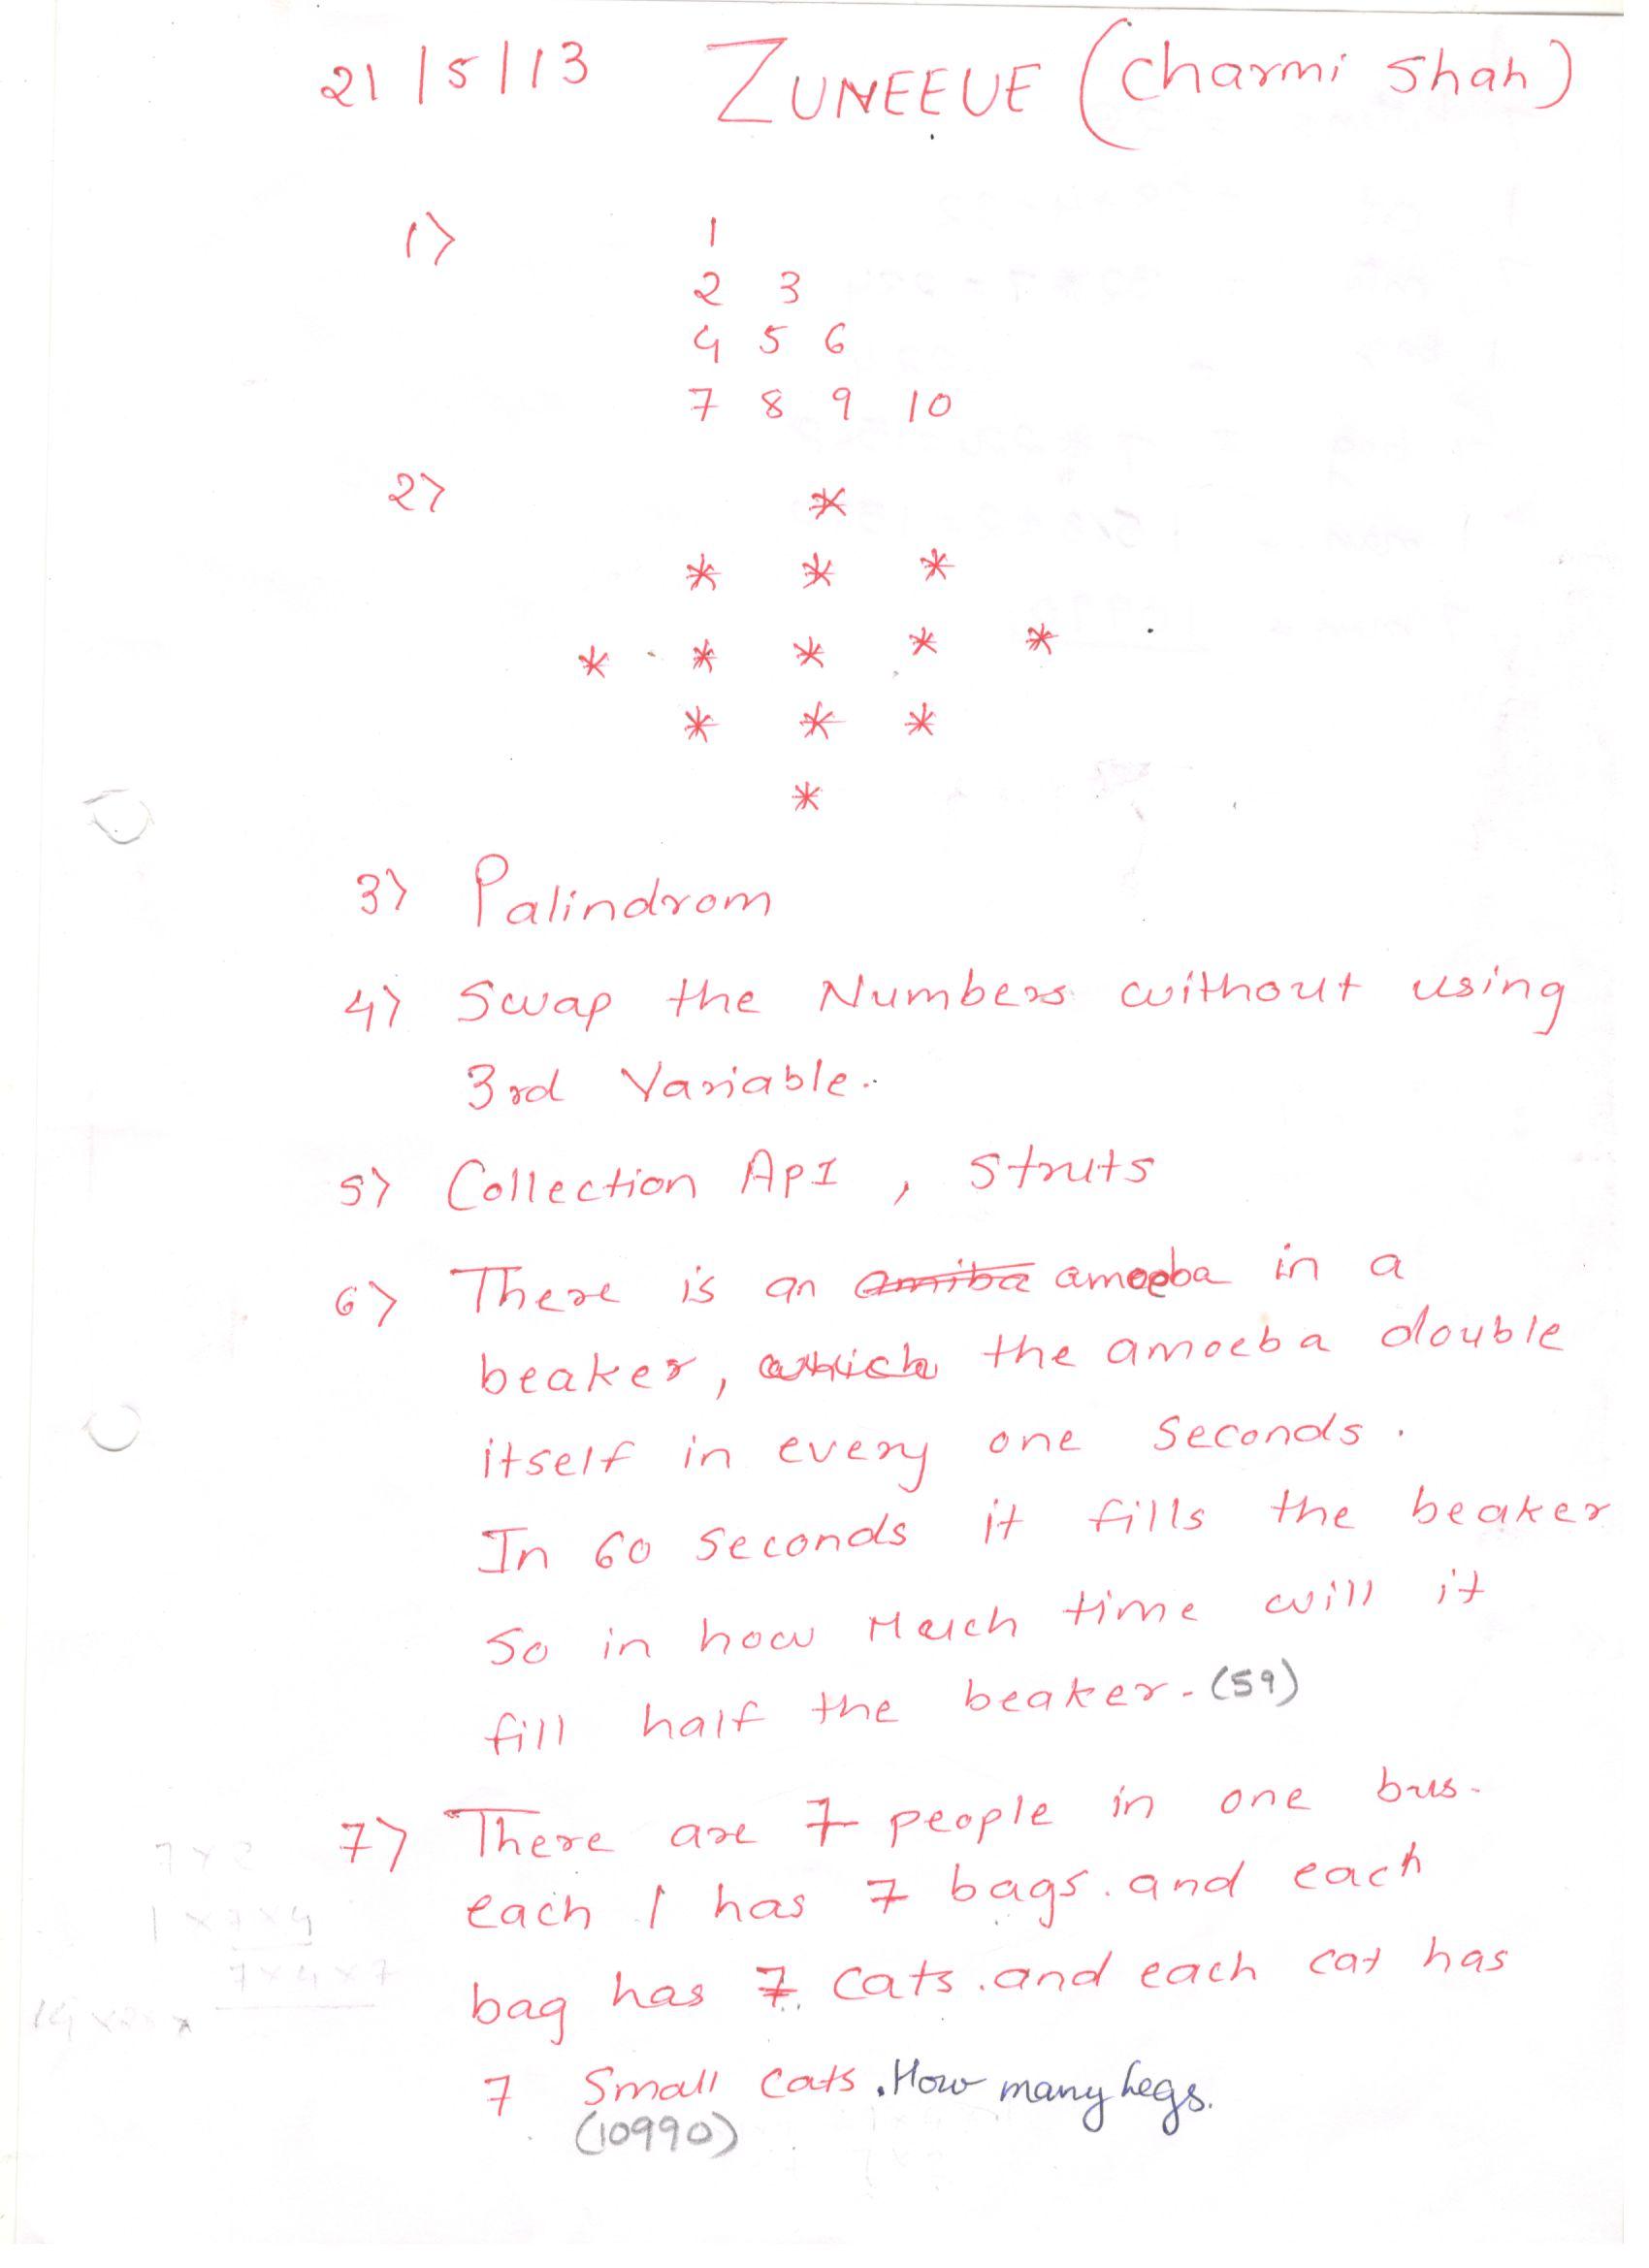 21/5/13 ZUNEEUE (Charmi Shah)
1) 1
2 3
4 5 6
7 8 9 10
2) *
* * *
* * * * *
* * *
*
3) Palindrom
4) Swap the Numbers without using
3rd Variable.
5) Collection API , Struts
6) There is an amiba amoeba in a
beaker, which the amoeba double
itself in every one seconds.
In 60 seconds it fills the beaker
So in how Much time will it
fill half the beaker. (59)
7) There are 7 people in one bus.
each 1 has 7 bags. and each
bag has 7 cats. and each cat has
7 Small cats. How many legs.
(10990)
7 x 2
1 x 7 x 4
7 x 4 x 7